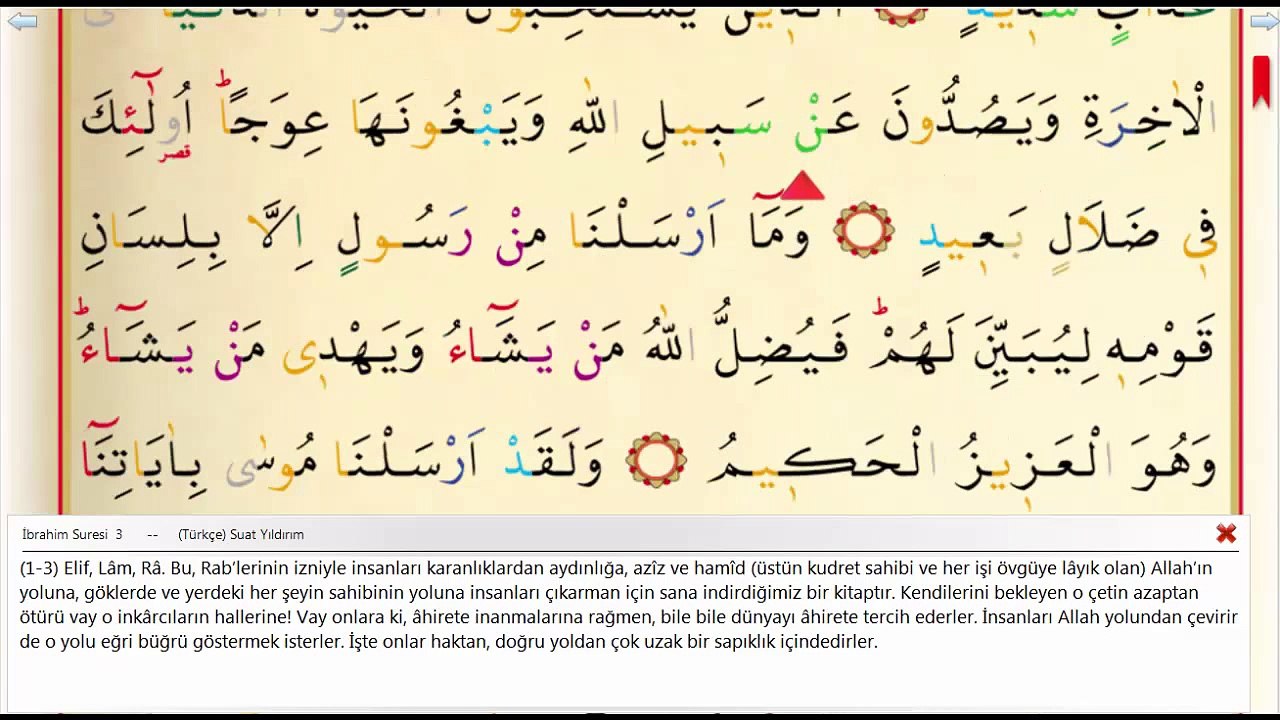 عَذَابٍ شَدٖيدٍ اَلَّذٖينَ يَسْتَحِبُّونَ الْحَيٰوةَ الدُّنْيَا عَلَى
الْاٰخِرَةِ وَيَصُدُّونَ عَنْ سَبٖيلِ اللّٰهِ وَيَبْغُونَهَا عِوَجًاؕ اُولٰٓئِكَ
قصر
فٖى ضَلَالٍ بَعٖيدٍ وَمَٓا اَرْسَلْنَا مِنْ رَسُولٍ اِلَّا بِلِسَانِ
قَوْمِهٖ لِيُبَيِّنَ لَهُمْؕ فَيُضِلُّ اللّٰهُ مَنْ يَشَٓاءُ وَيَهْدٖى مَنْ يَشَٓاءُؕ
وَهُوَ الْعَزٖيزُ الْحَكٖيمُ وَلَقَدْ اَرْسَلْنَا مُوسٰى بِاٰيَاتِنَٓا
İbrahim Suresi 3 -- (Türkçe) Suat Yıldırım
(1-3) Elif, Lâm, Râ. Bu, Rab’lerinin izniyle insanları karanlıklardan aydınlığa, azîz ve hamîd (üstün kudret sahibi ve her işi övgüye lâyık olan) Allah’ın
yoluna, göklerde ve yerdeki her şeyin sahibinin yoluna insanları çıkarman için sana indirdiğimiz bir kitaptır. Kendilerini bekleyen o çetin azaptan
ötürü vay o inkârcıların hallerine! Vay onlara ki, âhirete inanmalarına rağmen, bile bile dünyayı âhirete tercih ederler. İnsanları Allah yolundan çevirir
de o yolu eğri büğrü göstermek isterler. İşte onlar haktan, doğru yoldan çok uzak bir sapıklık içindedirler.